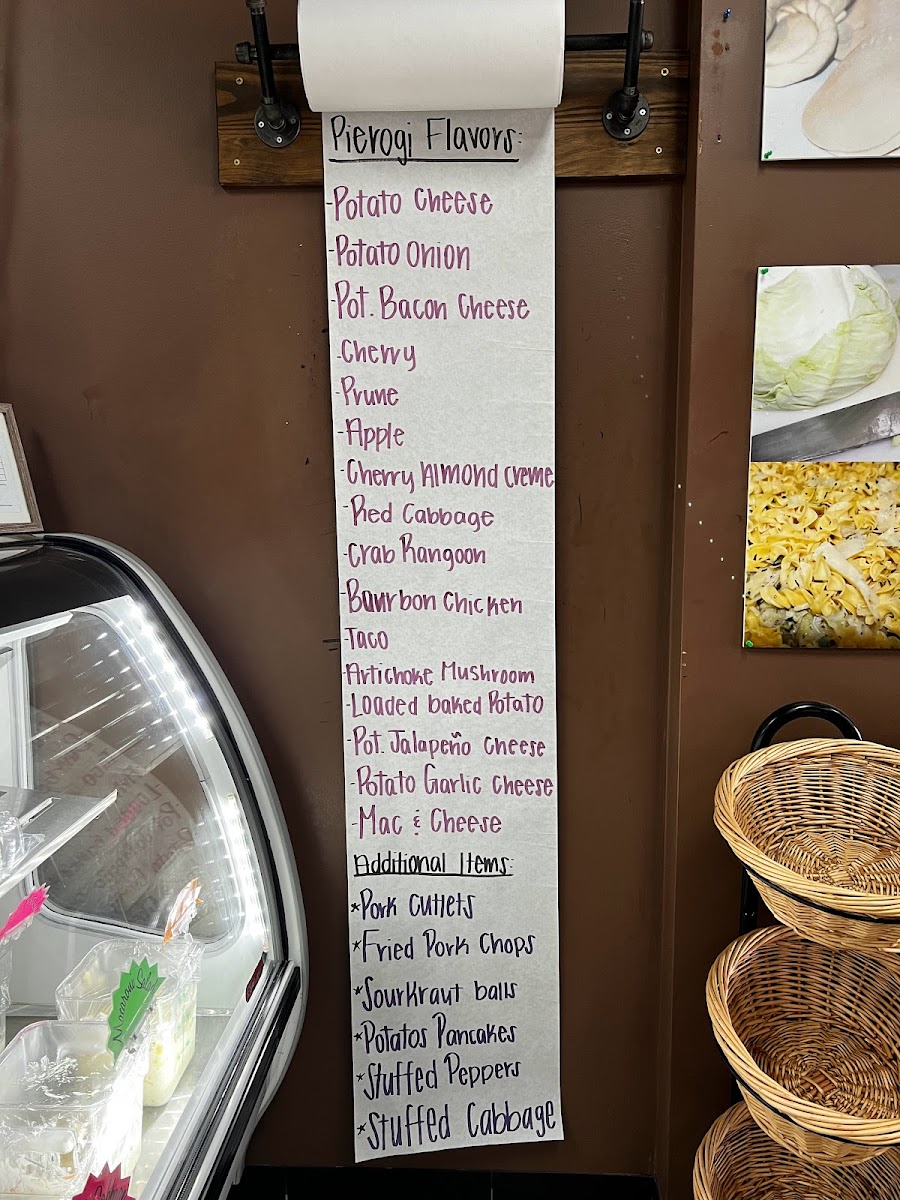 Pierogi Flavors:
-Potato Cheese
-Potato Onion
-Pot. Bacon Cheese
-Cherry
-Prune
-Apple
-Cherry Almond Creme
-Red Cabbage
-Crab Rangoon
-Bourbon Chicken
-Taco
-Artichoke Mushroom
-Loaded baked Potato
-Pot. Jalapeño Cheese
-Potato Garlic Cheese
-Mac & Cheese
Additional Items:
*Pork Cutlets
*Fried Pork Chops
*Sourkraut balls
*Potatos Pancakes
*Stuffed Peppers
*Stuffed Cabbage
Macaroni